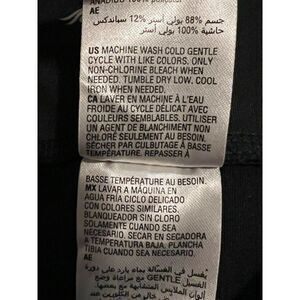 AÑADIDO 100% poliéster
AE
جسم 88% بولي أستر 12% سباندكس
حاشية 100% بولي أستر
US MACHINE WASH COLD GENTLE
CYCLE WITH LIKE COLORS. ONLY
NON-CHLORINE BLEACH WHEN
NEEDED. TUMBLE DRY LOW. COOL
IRON WHEN NEEDED.
CA LAVER EN MACHINE À L'EAU
FROIDE AU CYCLE DÉLICAT AVEC
COULEURS SEMBLABLES. UTILISER
UN AGENT DE BLANCHIMENT NON
CHLORÉ SEULEMENT AU BESOIN.
SÉCHER PAR CULBUTAGE À BASSE
TEMPÉRATURE. REPASSER À
BASSE TEMPÉRATURE AU BESOIN.
MX LAVAR A MÁQUINA EN
AGUA FRÍA CICLO DELICADO
CON COLORES SIMILARES.
BLANQUEADOR SIN CLORO
SOLAMENTE CUANDO SEA
NECESARIO. SECAR EN SECADORA
A TEMPERATURA BAJA. PLANCHA
TIBIA CUANDO SEA NECESARIO.
AE
يغسل في الغسالة بماء بارد على دورة
الغسيل GENTLE مع مراعاة وضع
ألوان الملابس المتشابهة مع بعضها.